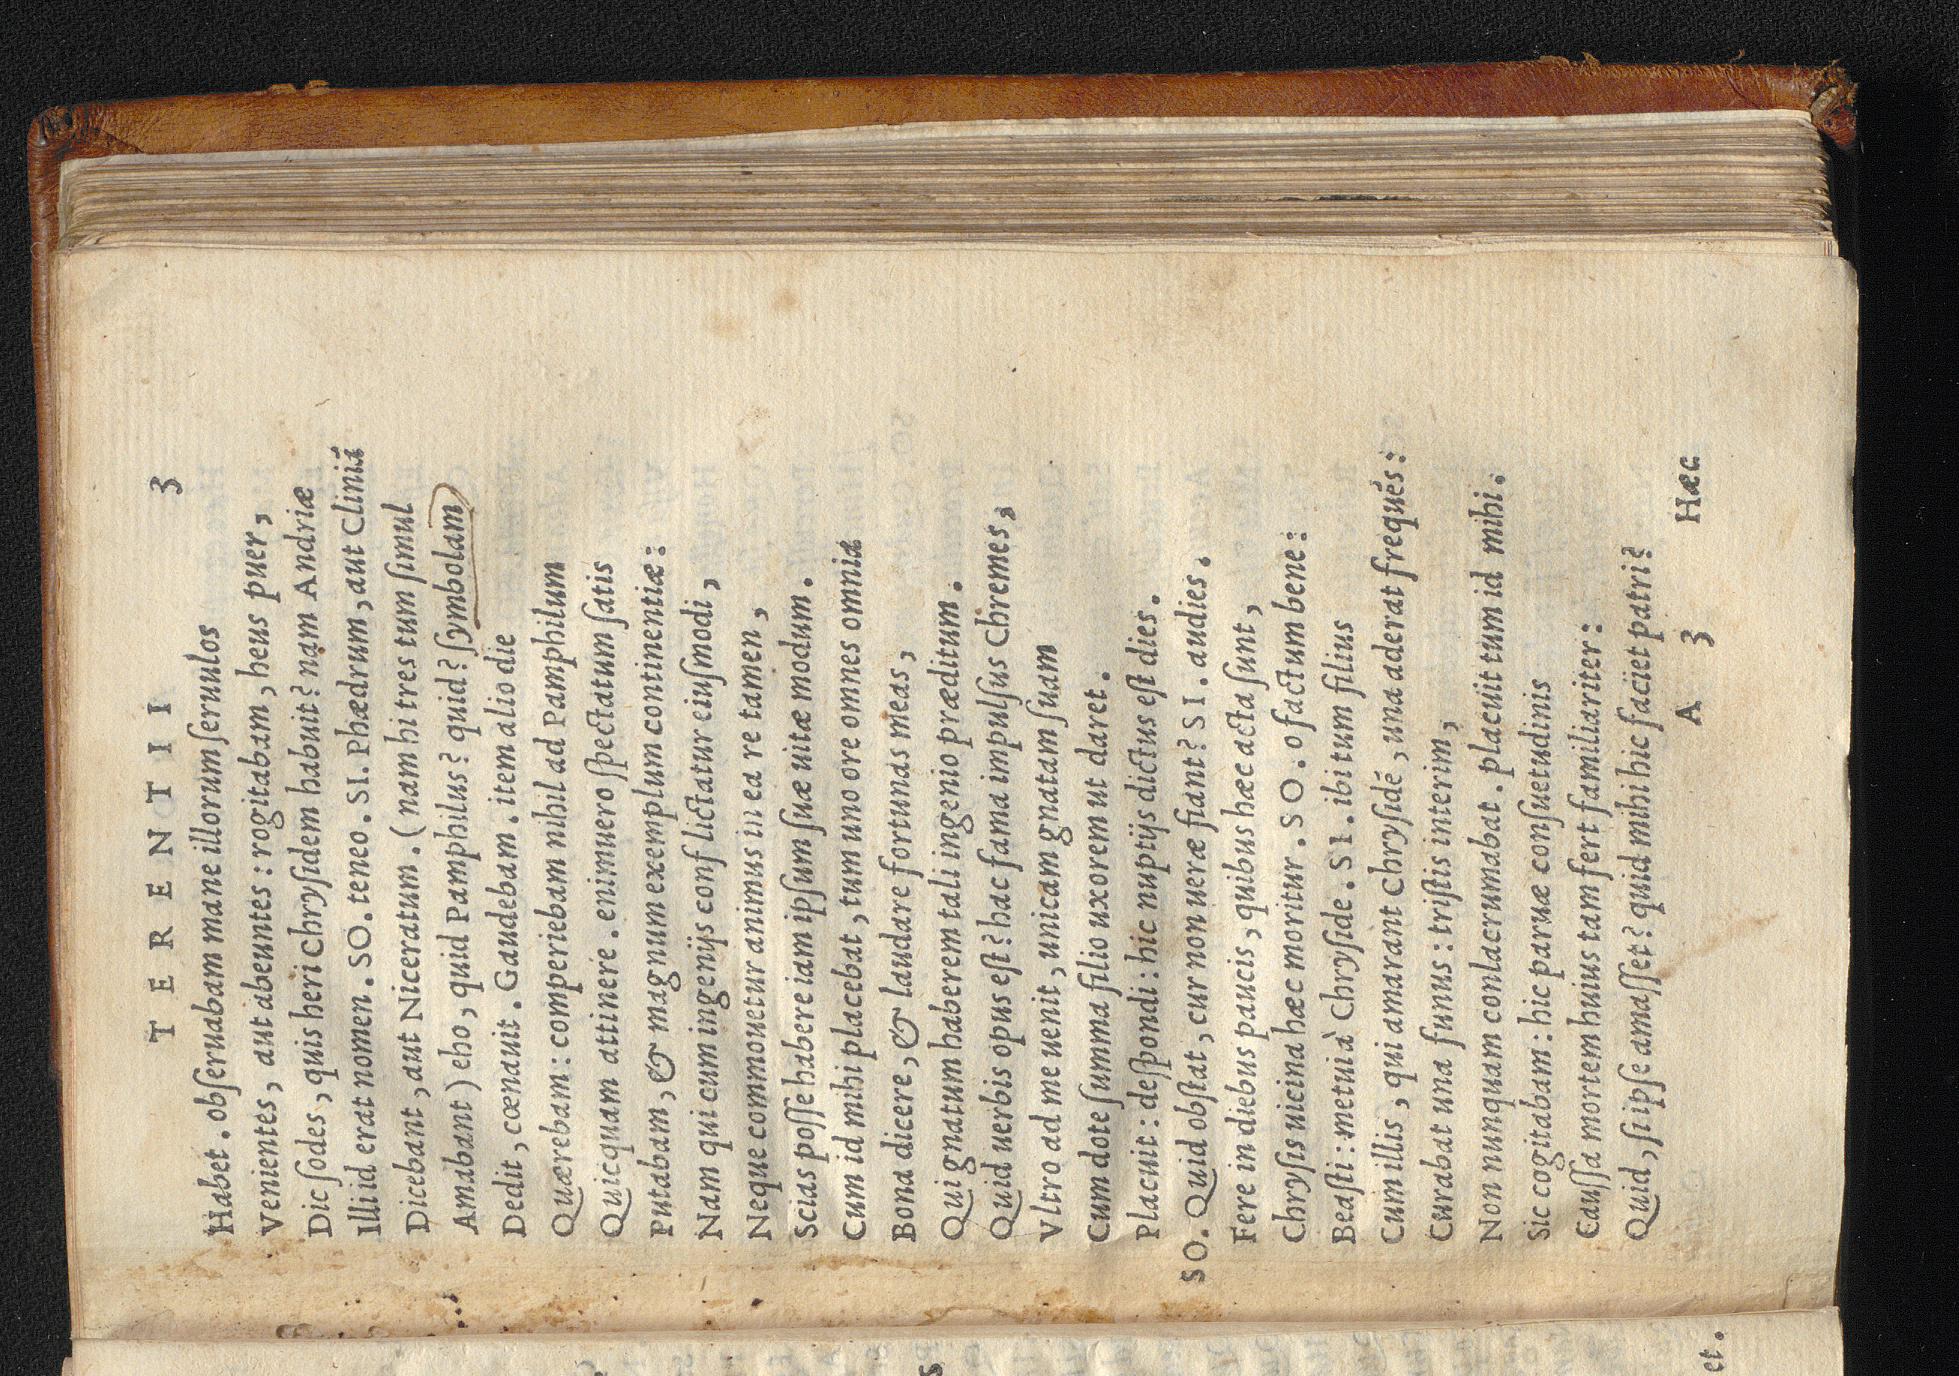 TERENTII 3
Habet. obſeruabam mane illorum ſeruulos
Venientes, aut abeuntes: rogitabam, heus puer,
Dic ſodes, quis heri Chryſidem habuit? nam Andriæ
Illi id erat nomen. SO. teneo. SI. Phædrum, aut Cliniā
Dicebant, aut Niceratum. (nam hi tres tum ſimul
Amabant) eho, quid Pamphilus? quid? ſymbolam
Dedit, cœnauit. Gaudebam. item alio die
Quærebam: comperiebam nihil ad Pamphilum
Quicquam attinere. enimuero ſpectatum ſatis
Putabam, & magnum exemplum continentiæ:
Nam qui cum ingenijs conflictatur eiuſmodi,
Neque commouetur animus in ea re tamen,
Scias poſſe habere iam ipſum ſuæ uitæ modum.
Cum id mihi placebat, tum uno ore omnes omnia
Bona dicere, & laudare fortunas meas,
Qui gnatum haberem tali ingenio præditum.
Quid uerbis opus eſt? hac fama impulſus Chremes,
Vltro ad me uenit, unicam gnatam ſuam
Cum dote ſumma filio uxorem ut daret.
Placuit: deſpondi: hic nuptijs dictus eſt dies.
SO. Quid obſtat, cur non ueræ fiant? SI. audies.
Fere in diebus paucis, quibus hæc acta ſunt,
Chryſis uicina hæc moritur. SO. o factum bene:
Beaſti: metui à Chryſide. SI. ibi tum filius
Cum illis, qui amarant Chryſidē, una aderat frequēs:
Curabat una funus: triſtis interim,
Non nunquam conlacrumabat. placuit tum id mihi.
Sic cogitabam: hic paruæ conſuetudinis
Cauſſa mortem huius tam fert familiariter:
Quid, ſi ipſe amaſſet? quid mihi hic faciet patri?
A 3 Hæc
et.